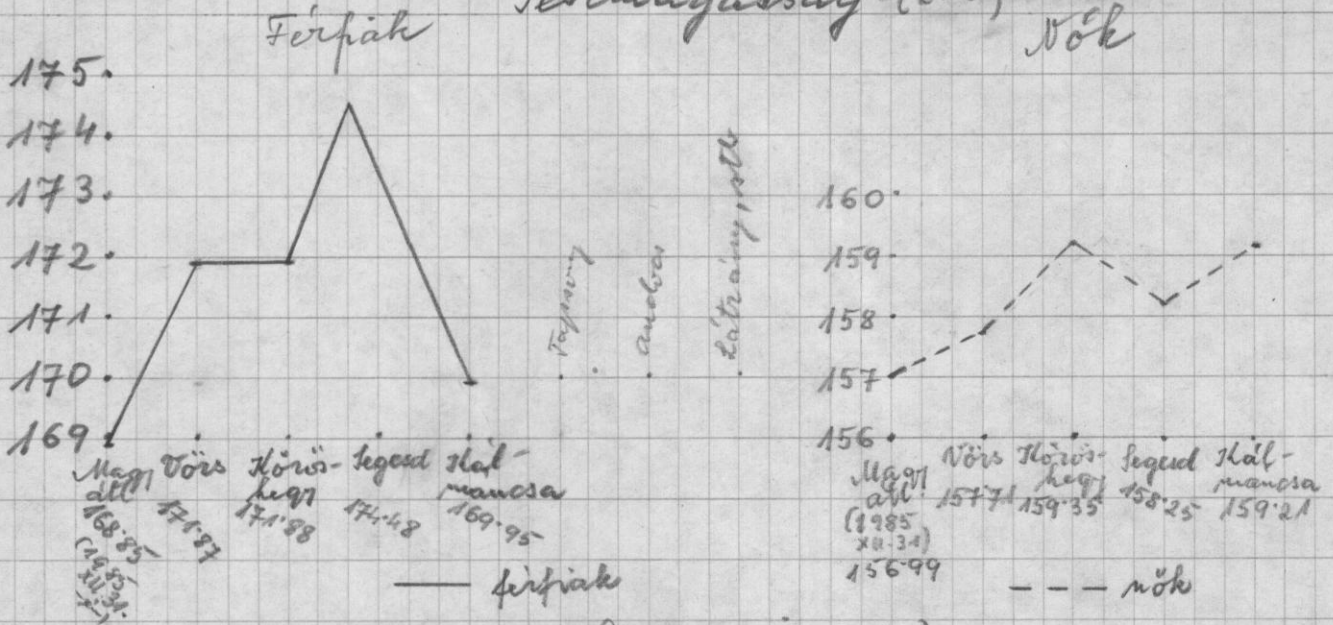 Férfiak
175
174
173
172
171
170
169
Magy.
átl.
168·85
(1985
XII·31.
Vörs
171·87
Kőrös-
hegy
171·88
Segesd
174·48
Kál-
mancsa
169·95
férfiak
Nők
160
159
158
157
156
Magy
átl.
(1985
XII·31)
156·99
Vörs
157·71
Kőrös-
hegy
159·35
Segesd
158·25
Kál-
mancsa
159·21
nők